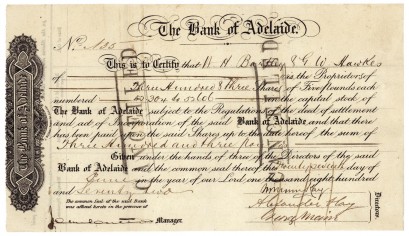 The Bank of Adelaide.
No. 135
This is to Certify that W H Bartley & G W Hawkes
of are the Proprietors of
Three Hundred & Three Shares of Five Pounds each
numbered in the capital stock of
The Bank of Adelaide subject to the Regulations of the deed of settlement
and act of Incorporation of the said Bank of Adelaide and that there
has been paid upon the said Shares up to the date hereof the sum of
Three Hundred and three Pounds
Given under the hands of three of the Directors of the said
Bank of Adelaide and the common seal thereof this day of
June in the year of our Lord, one thousand eight hundred
and Seventy two
The common Seal of the said Bank
was affixed hereto in the presence of
Manager.
Alexander Hay
Directors
CANCELLED
CANCELLED
The Bank of Adelaide